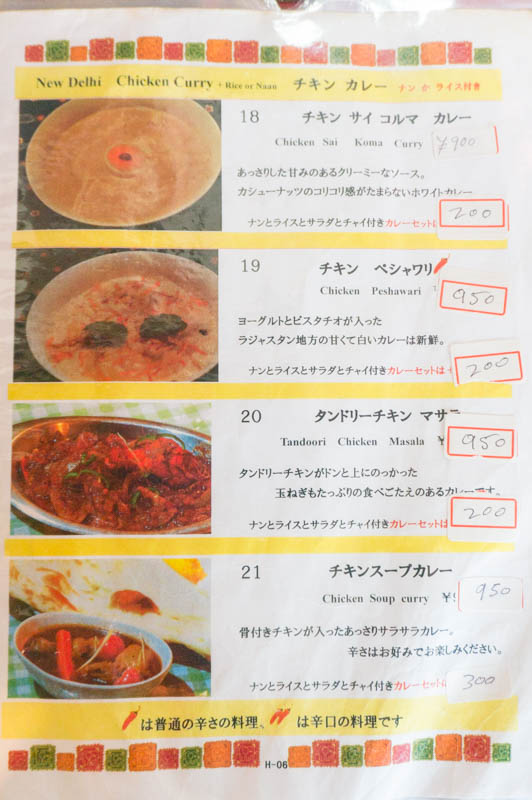 New Delhi Chicken Curry + Rice or Naan チキン カレー ナン か ライス付き
18 チキン サイ コルマ カレー
Chicken Sai Koma Curry ¥900
あっさりした甘みのあるクリーミーなソース。
カシューナッツのコリコリ感がたまらないホワイトカレー
ナンとライスとサラダとチャイ付きカレーセットは 200
19 チキン ペシャワリ
Chicken Peshawari 950
ヨーグルトとピスタチオが入った
ラジャスタン地方の甘くて白いカレーは新鮮。
ナンとライスとサラダとチャイ付きカレーセットは + 200
20 タンドリーチキン マサラ
Tandoori Chicken Masala ¥ 950
タンドリーチキンがドンと上にのっかった
玉ねぎもたっぷりの食べごたえのあるカレーです。
ナンとライスとサラダとチャイ付きカレーセットは 200
21 チキンスープカレー
Chicken Soup curry ¥9 950
骨付きチキンが入ったあっさりサラサラカレー。
辛さはお好みでお楽しみください。
ナンとライスとサラダとチャイ付きカレーセットは 300
は普通の辛さの料理、 は辛口の料理です
H-06